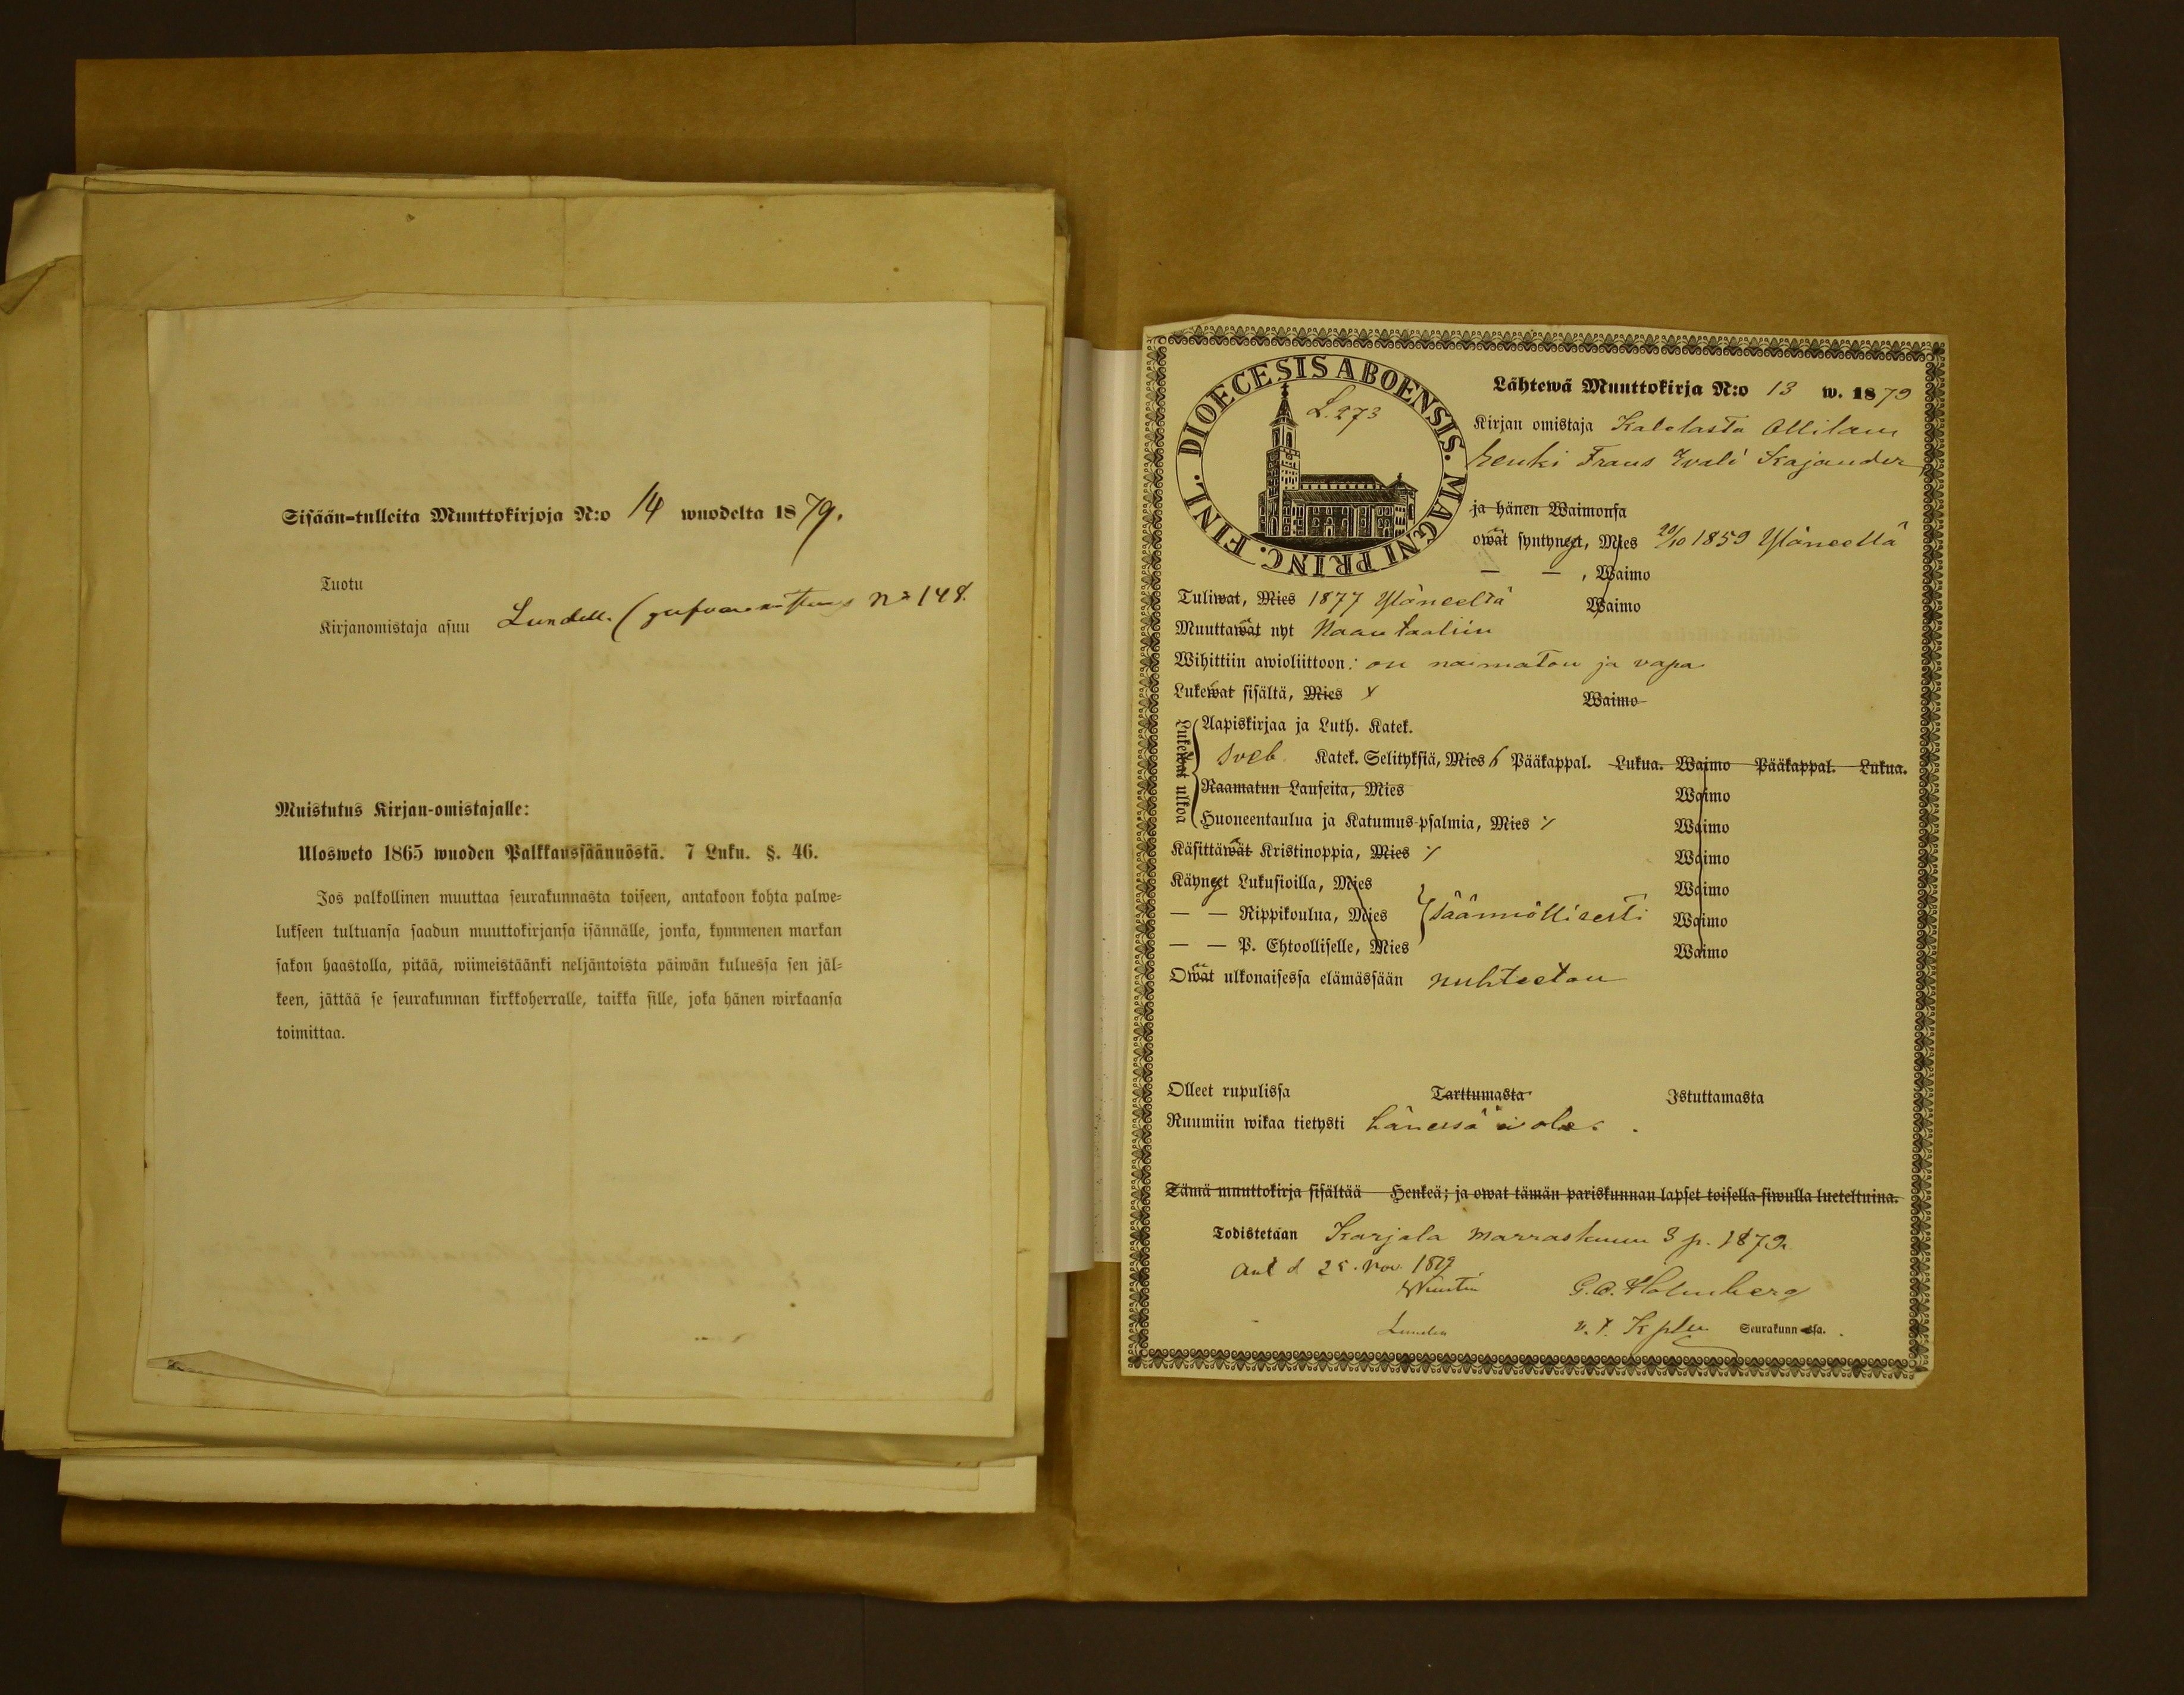 Sisään-tulleita Muuttokirjoja N:o 14 wuodelta 1879.
Tuotu
Kirjanomistaja asuu Lundell. ( No 148.
Muistutus Kirjan-omistajalle:
Ulosweto 1865 wuoden Palkkaussäännöstä. 7 Luku. §. 46.
Jos palkollinen muuttaa seurakunnasta toiseen, antakoon kohta palwe-
lukseen tultuansa saadun muuttokirjansa isännälle, jonka, kymmenen markan
sakon haastolla, pitää, wiimeistäänki neljäntoista päiwän kuluessa sen jäl-
keen, jättää se seurakunnan kirkkoherralle, taikka sille, joka hänen wirkaansa
toimittaa.
DIOECESIS ABOENSIS. MAGNI PRINC. FINL.
L. 273
Lähtewä Muuttokirja N:o 13 w. 1879
Kirjan omistaja Kalelasta Ollilan
renki Frans Evali Kajander
ja hänen Waimonsa
owat syntynyet, Mies 20/10 1859 Yläneellä
— — , Waimo
Tuliwat, Mies 1877 Yläneeltä Waimo
Muuttawat nyt Naantaaliin
Wihittiin awioliittoon: on naimaton ja vapa
Lukewat sisältä, Mies Waimo
Lukewat ulkoa
Aapiskirjaa ja Luth. Katek.
Sveb. Katek. Selityksiä, Mies 6 Pääkappal. Lukua. Waimo Pääkappal. Lukua.
Raamatun Lauseita, Mies Waimo
Huoneentaulua ja Katumus-psalmia, Mies Waimo
Käsittäwät Kristinoppia, Mies Waimo
Käynyet Lukusioilla, Mies Waimo
— — Rippikoulua, Mies säännöllisesti Waimo
— — P. Ehtoolliselle, Mies Waimo
Owat ulkonaisessa elämässään nuhteeton
Olleet rupulissa Tarttumasta Istuttamasta
Ruumiin wikaa tietysti hänessä ei ole.
Tämä muuttokirja sisältää Henkeä; ja owat tämän pariskunnan lapset toisella siwulla lueteltuina.
Todistetaan Karjala Marraskuun 3 p. 1879.
Anl d 25. Nov. 1879
G. A. Holmberg
v. t. Kpln Seurakunnassa.